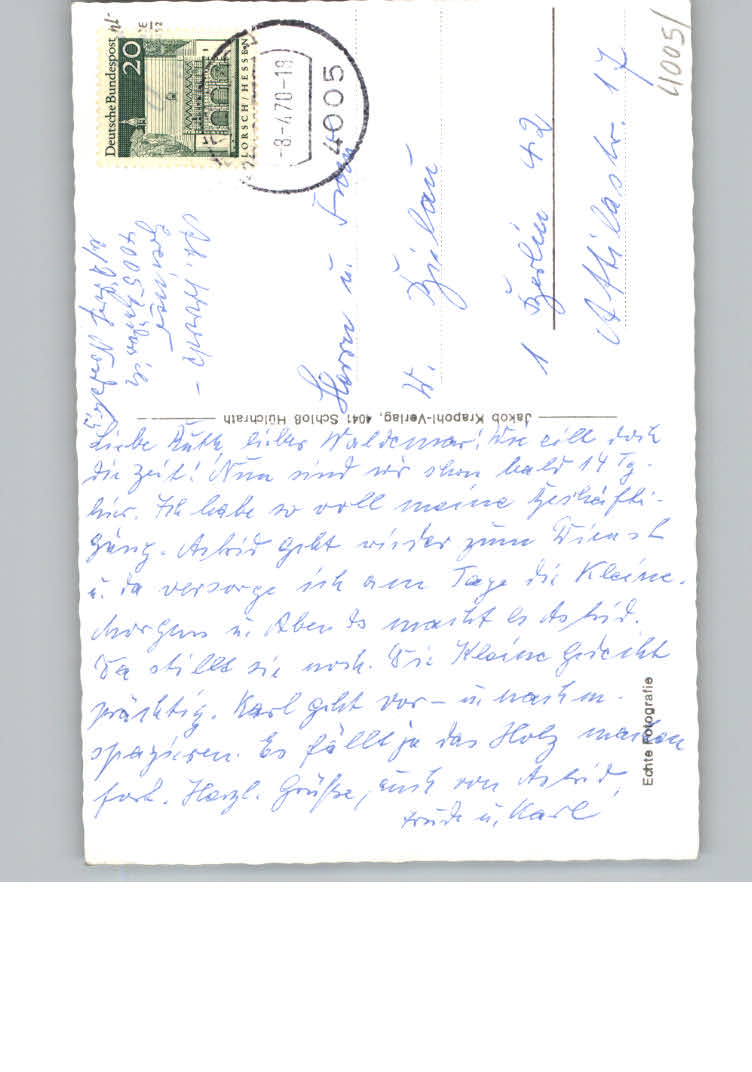 Deutsche Bundespost
20
LORSCH/HESSEN
-8-4.70-18
4005
4005/
4005
Herrn u. Frau
W.
1 Berlin 42
Attilastr. 17
Jakob Krapohl-Verlag, 4041 Schloß Hülchrath
Echte Fotografie
Liebe Ruth, lieber Waldemar! Wie eilt doch
die Zeit! Nun sind wir schon bald 14 Tg.
hier. Ich habe so voll meine Beschäfti-
gung. Astrid geht wieder zum Dienst
u. da versorge ich am Tage die Kleine.
Morgens u. Abends macht es Astrid.
Da stillt sie noch. Die Kleine gedeiht
prächtig. Karl geht vor- u. nachm.
spazieren. Es fällt ja das Holz machen
fort. Herzl. Grüße, auch von Astrid,
Trude u. Karl